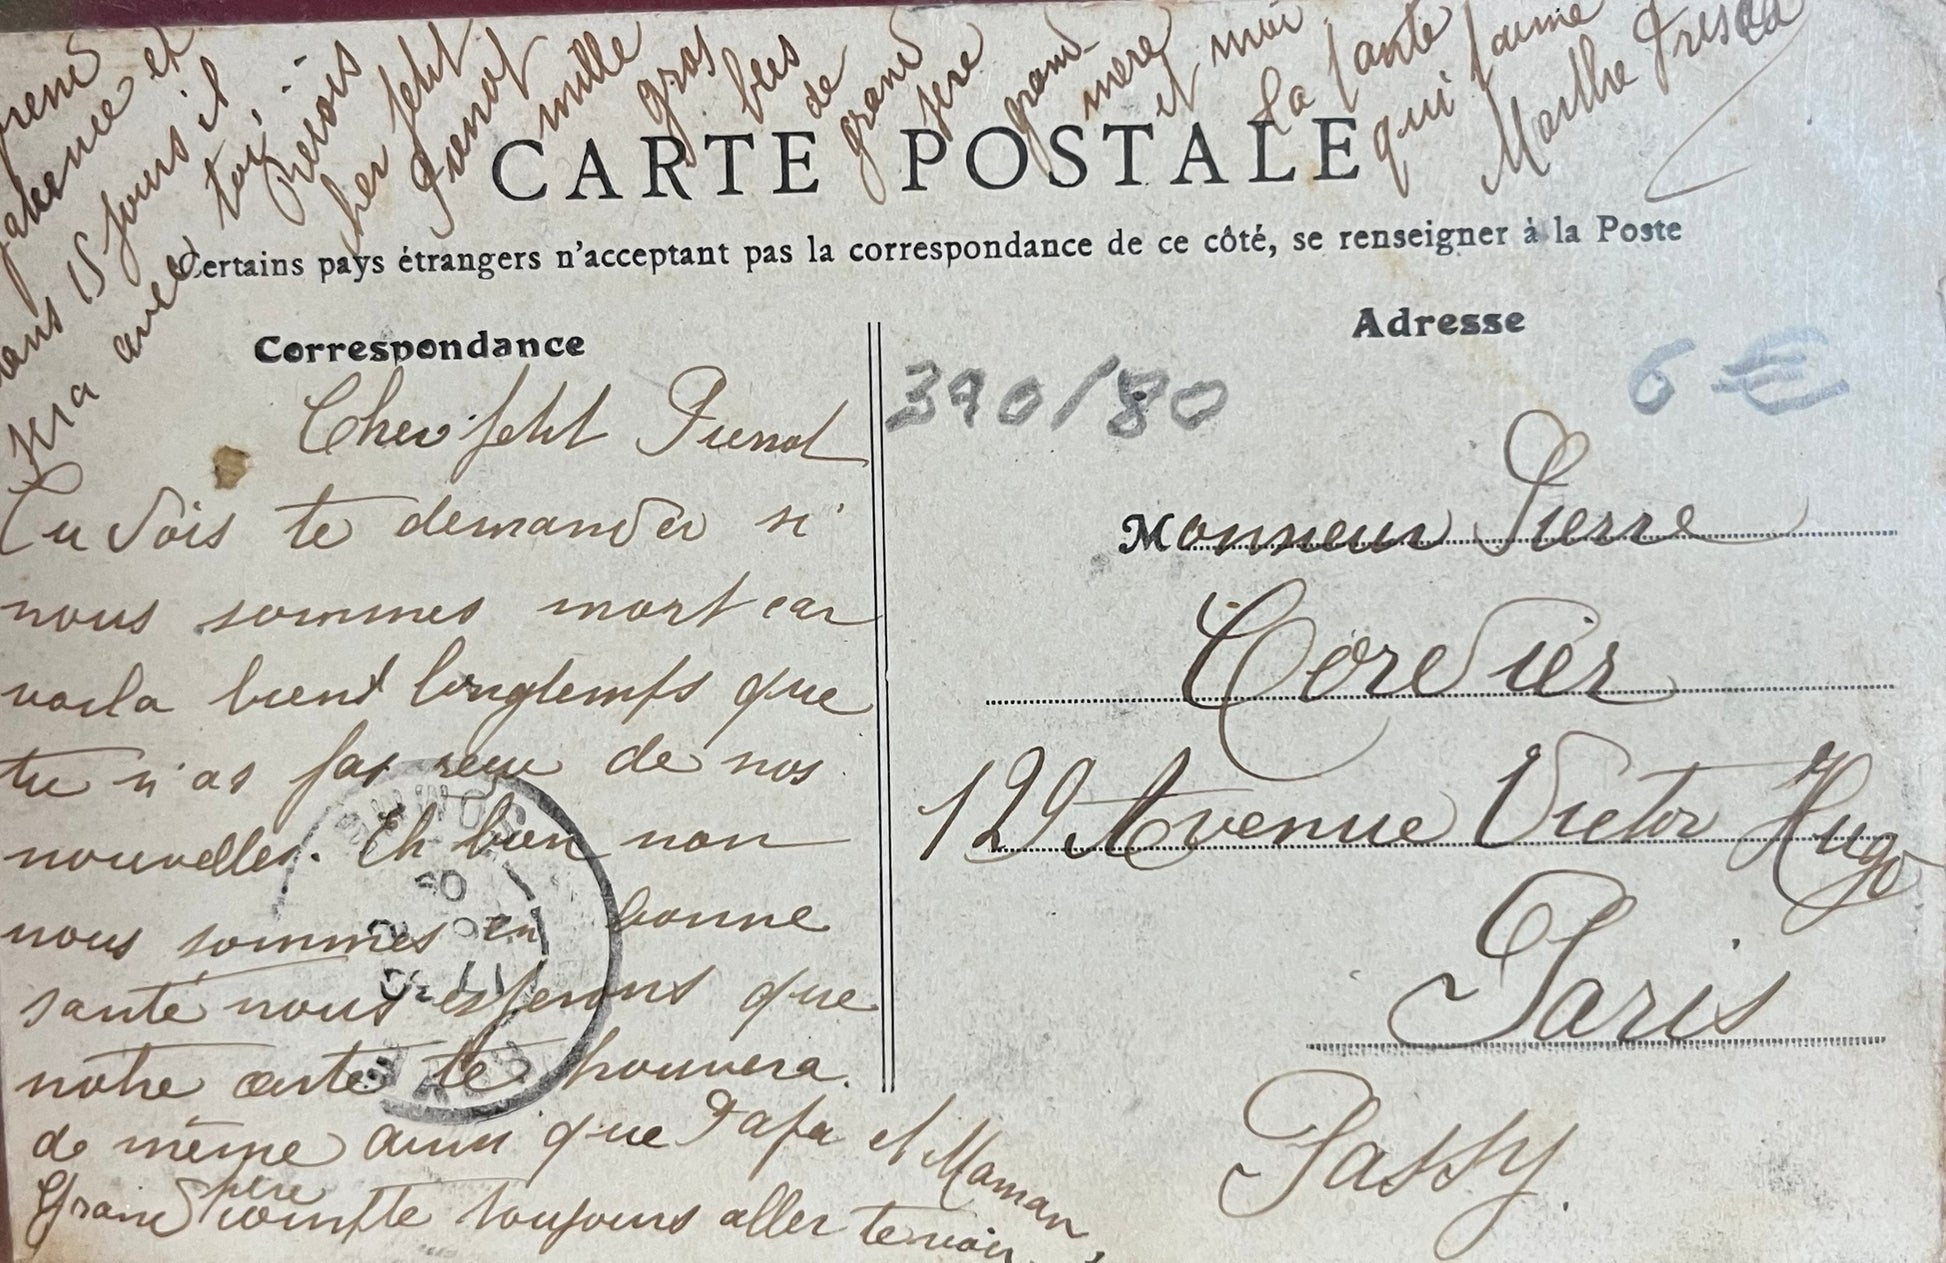 CARTE POSTALE
Certains pays étrangers n'acceptant pas la correspondance de ce côté, se renseigner à la Poste
Correspondance
Cher petit Pierrot
Tu dois te demander si
nous sommes mort car
voila bient longtemps que
tu n'as pas reçu de nos
nouvelles. Eh bien non
nous sommes en bonne
santé nous esperons que
notre carte te trouvera
de même ainsi que Papa et Maman,
Grand père compte toujours aller te voir
prend
patience et
dans 15 jours il
sera avec toi,
reçois
cher petit
Pierrot
mille
gros
bees
de
grand
père
grand
mère
et moi
La tante
qui t'aime
Marthe
Adresse
390/80
6 €
Monsieur Pierre
Cordier
129 Avenue Victor Hugo
Paris
Passy.